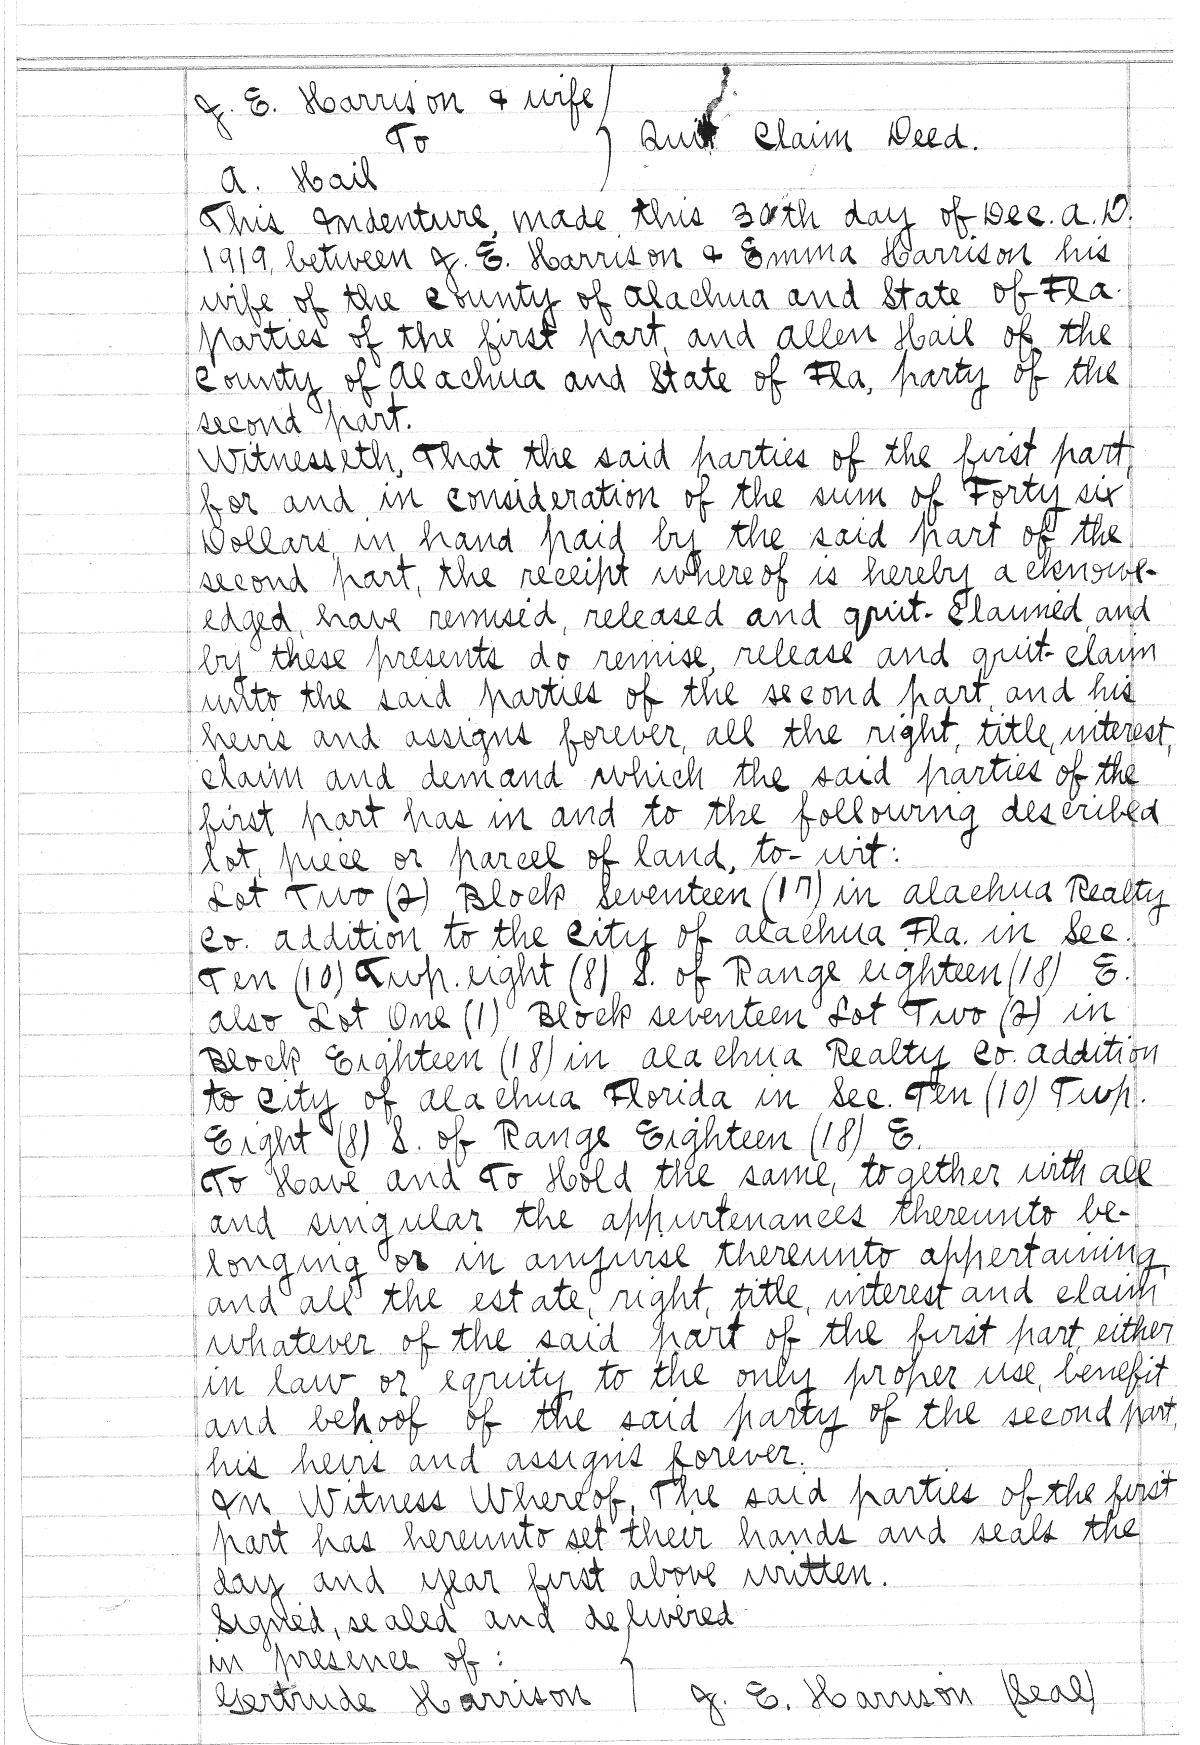 J. E. Harrison & wife
To
Quit Claim Deed.
A. Hail
This Indenture, made this 30th day of Dec. A. D.
1919, between J. E. Harrison & Emma Harrison his
wife of the County of Alachua and State of Fla.
parties of the first part, and Allen Hail of the
County of Alachua and State of Fla, party of the
second part.
Witnesseth, That the said parties of the first part,
for and in consideration of the sum of Forty six
Dollars, in hand paid by the said part of the
second part, the receipt whereof is hereby acknowl-
edged, have remised, released and quit-claimed, and
by these presents do remise, release and quit-claim
unto the said parties of the second part, and his
heirs and assigns forever, all the right, title, interest,
claim and demand which the said parties of the
first part has in and to the following described
lot, piece or parcel of land, to-wit:
Lot Two (2) Block Seventeen (17) in Alachua Realty
Co. addition to the City of Alachua Fla. in Sec.
Ten (10) Twp. eight (8) S. of Range eighteen (18) E.
also Lot One (1) Block seventeen Lot Two (2) in
Block Eighteen (18) in Alachua Realty Co. addition
to City of Alachua Florida in Sec. Ten (10) Twp.
Eight (8) S. of Range Eighteen (18) E.
To Have and To Hold the same, together with all
and singular the appurtenances thereunto be-
longing or in anywise thereunto appertaining,
and all the estate, right, title, interest and claim
whatever of the said part of the first part, either
in law or equity, to the only proper use, benefit
and behoof of the said party of the second part,
his heirs and assigns forever.
In Witness Whereof, The said parties of the first
part has hereunto set their hands and seals the
day and year first above written.
Signed, sealed and delivered
in presence of:
Gertrude Harrison J. E. Harrison (Seal)